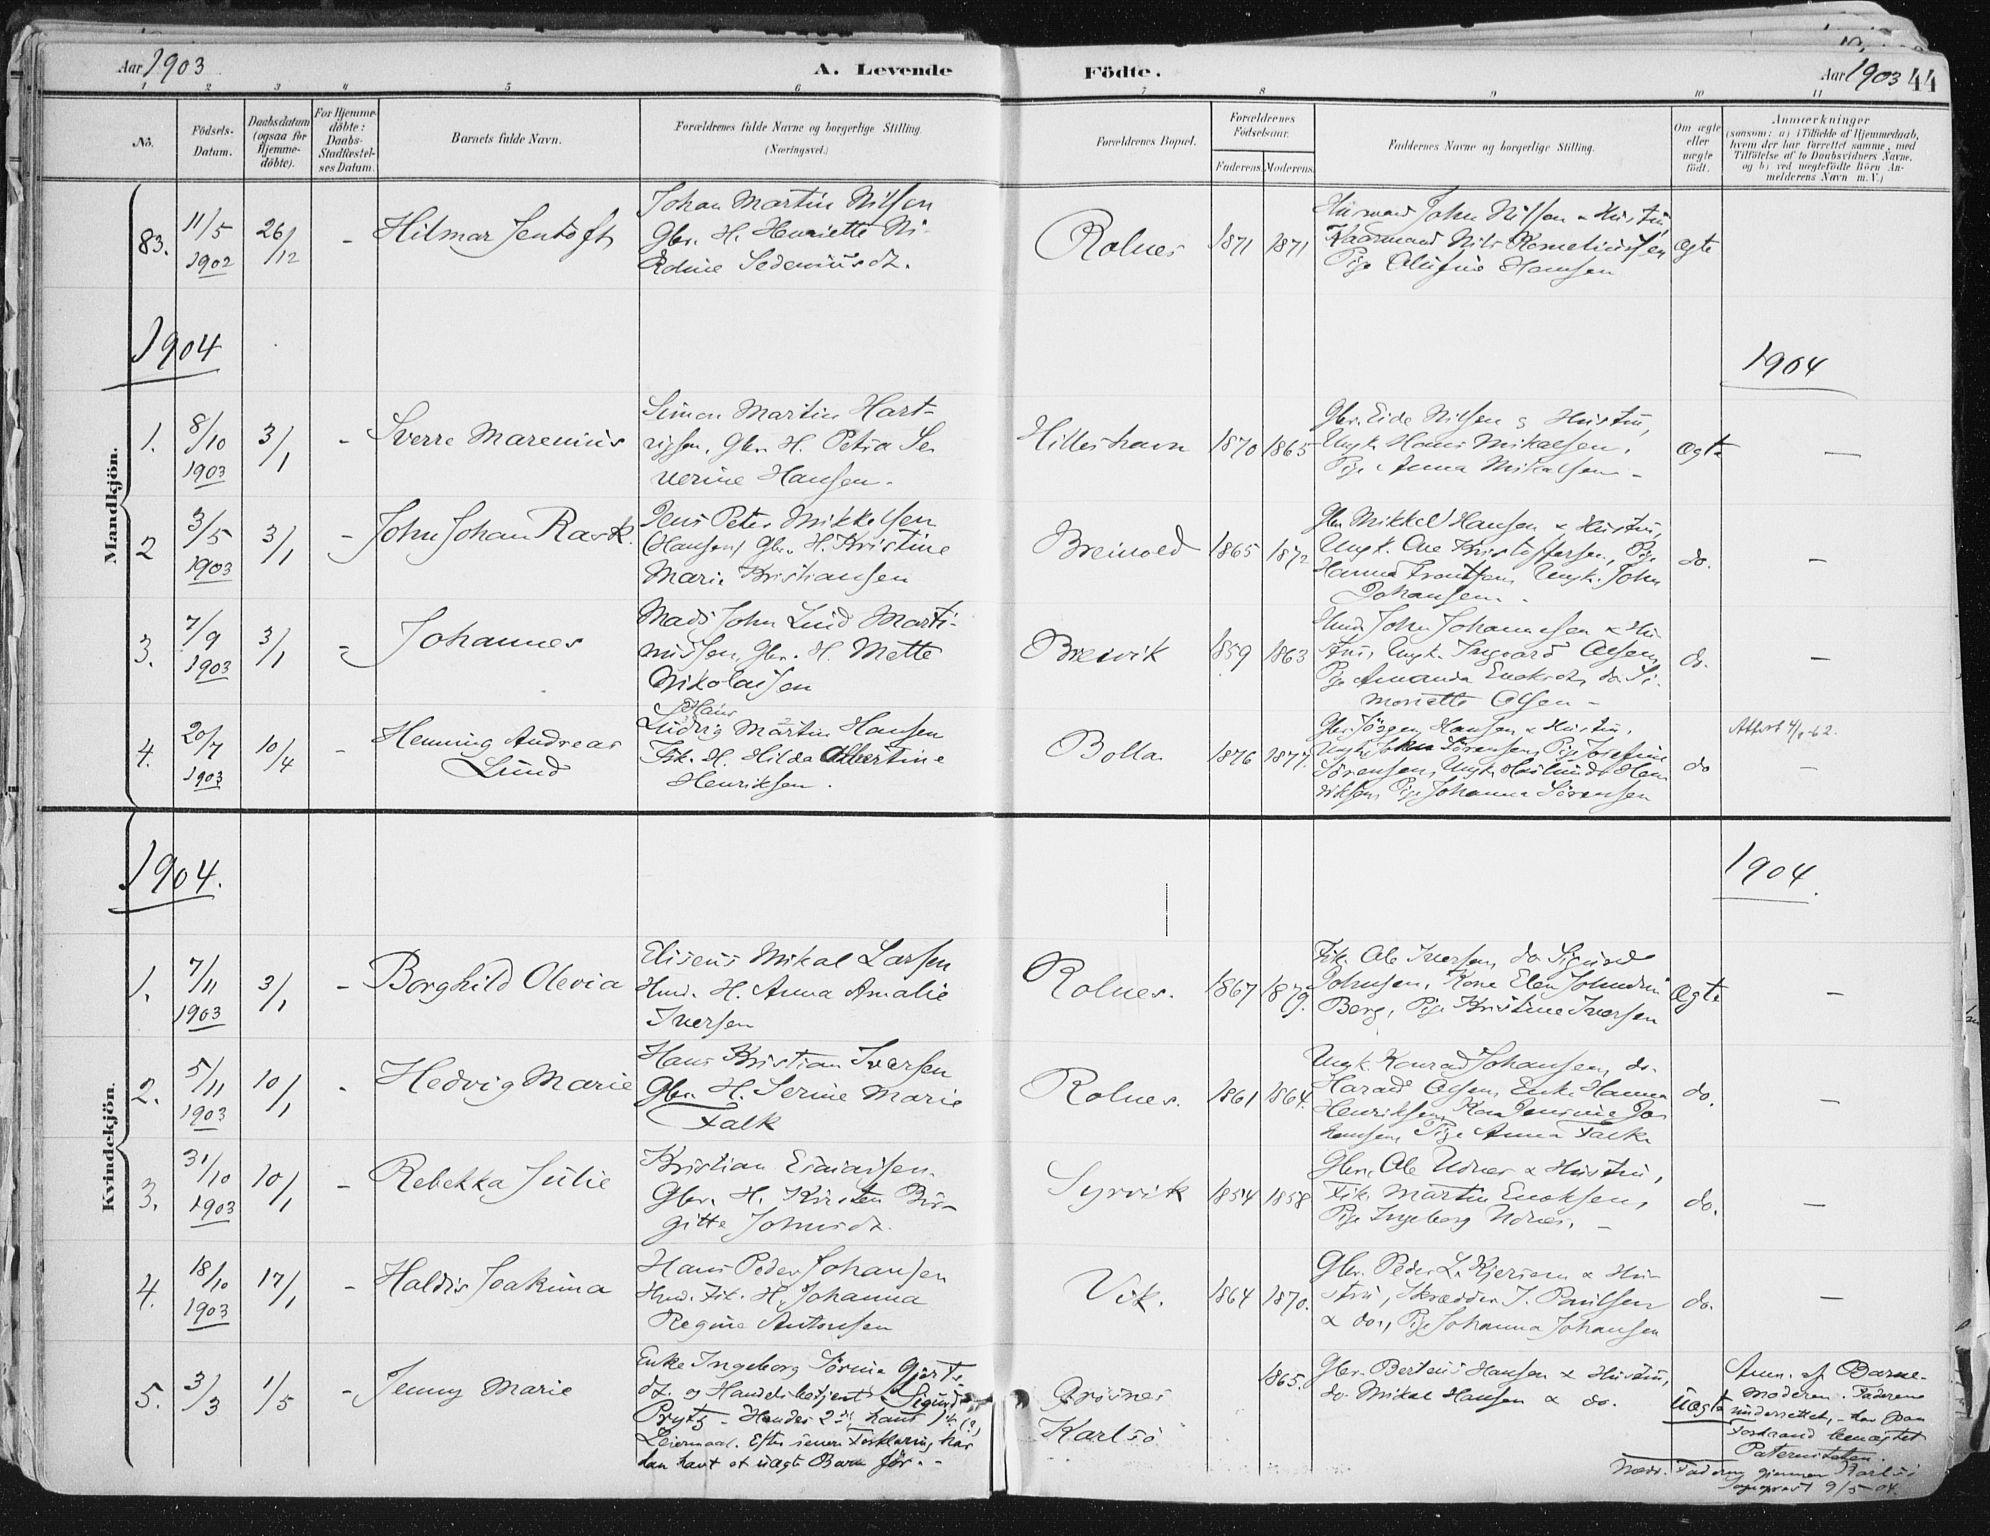 Aar 1903
A. Levende
Födte.
Aar 1903 44
1 2 3 4 5 6 7 8 9 10 11
No.
Födsels-
Datum.
Daabsdatum
(ogsaa for
Hjemme-
döbte).
For Hjemme-
döbte:
Daabs-
Stadfæstel-
ses Datum.
Barnets fulde Navn.
Forældrenes fulde Navne og borgerlige Stilling.
(Næringsvei.)
Forældrenes Bopæl.
Forældrenes
Födselsaar.
Faderens.
Moderens.
Faddernes Navne og borgerlige Stilling.
Om ægte
eller
uægte
födt.
Anmærkninger
(saasom: a) i Tilfælde af Hjemmedaab,
hvem der har forrettet samme, med
Tilföielse af to Daabsvidners Navne,
og b) ved uægtefödte Börn An-
melderens Navn m. V.)
Mandkjön.
83.
11/5
1902
26/12
-
Hilmar Jentoft
Johan Martin Nilsen
Gbr. H. Henriette Ni-
Edine Sedeniusdt.
Rolnes
1871
1871
Husmand John Nilsen & Hustru,
Kaarmand Nils Korneliussen
Pige Alufine Hansen
ægte
1904
1904
1.
8/10
1903
3/1
-
Sverre Marenius
Simon Martin Hart-
vigsen, Gbr. H. Petra Se-
verine Hansen.
Hilleshavn
1870
1865
Gbr. Eide Nilsen & Hustru,
Ungk. Hans Mikalsen,
Pige Anna Mikalsen -
ægte
—
2
3/5
1903
3/1
-
John Johan Rask.
Jens Peter Mikkelsen
(Hansen) Gbr. H. Kristine
Marie Kristiansen
Breivold
1865
1872
Gbr Mikkel Hansen & Hustru,
Ungk. Ole Kristoffersen, Pige
Hanna Frantsen, Ungk. John
Johansen.
do.
—
3.
7/9
1903
3/1
-
Johannes
Mads John Lind Marti-
nussen, Gbr. H. Mette
Nikolaisen
Breivik
1859
1863
Hmd John Johannesen & Hu-
stru, Ungk. Ingvard Olsen,
Pige Amanda Enoksen, do Si-
monette Olsen -
do.
—
4.
20/7
1903
10/4
-
Henning Andreas
Lund
Hans
Ludvig Martin Hansen
Fisk. H. Hilda Albertine
Henriksen.
Bolla
1876
1877
Gbr Jörgen Hansen & Hustru,
Ungk. Sörensen, Pige Josefine
Sörensen, Ungk. Hen-
riksen, Pige Johanna Sörensen
do
—
Kvindekjön.
1904.
1904.
1.
7/11
1903
3/1
-
Borghild Olevia
Eliseus Mikal Larsen
Hmd. H. Anna Amalie
Iversen
Rolnes.
1867
1879.
Fisk. Ole Iversen, do Sigurd
Johnsen, Kone Elen Johndine
Berg, Pige Kristine Iversen
Ægte
—
2.
5/11
1903
10/1
-
Hedvig Marie
Hans Kristian Iversen
Gbr. H. Serine Marie
Falk
Rolnes.
1861
1864.
Ungk. Konrad Johansen, do.
Harald Olsen, Enke Hanna
Henriksen, Kone Jensine Jo-
hansen, Pige Anna Falk
do.
—
3.
31/10
1903
10/1
-
Rebekka Julie
Kristian Esaiassen.
Gbr. H. Kirsten Bir-
gitte Johnsdt.
Syrvik
1854
1858
Gbr. Ole Udnes & Hustru,
Fisk. Martin Enoksen,
Pige Ingeborg Udnes. -
do.
—
4.
18/10
1903
17/1
-
Haldis Joakima
Hans Peder Johansen
Hmd. Fisk. H. Johanna
Regine Antonsen
Vik.
1864
1870.
Gbr. Peder L. Kjersem & Hu-
stru, Skrædder J. Paulsen
& do., Pige Johanna Johansen
do.
—
5.
3/3
1/5
-
Jenny Marie
Enke Ingeborg Sörine Gjerts-
dt. og Handelsbetjent Sigurd
Prytz - Hendes 2det, hans 1ste (?)
Leiermaal. Efter senere Forklaring har
han havt et uægte Barn för. -
Grösnes
Karlsö
1865.
Gbr. Berteus Hansen & Hustru,
do. Mikal Hansen & do.
uægte
Anm. af Barne-
moderen. Faderen
underrettet, - har paa
Forhaand benægtet
Paterniteten.
Faderen gjennem Karlsö
Sogneprest 9/5-04.